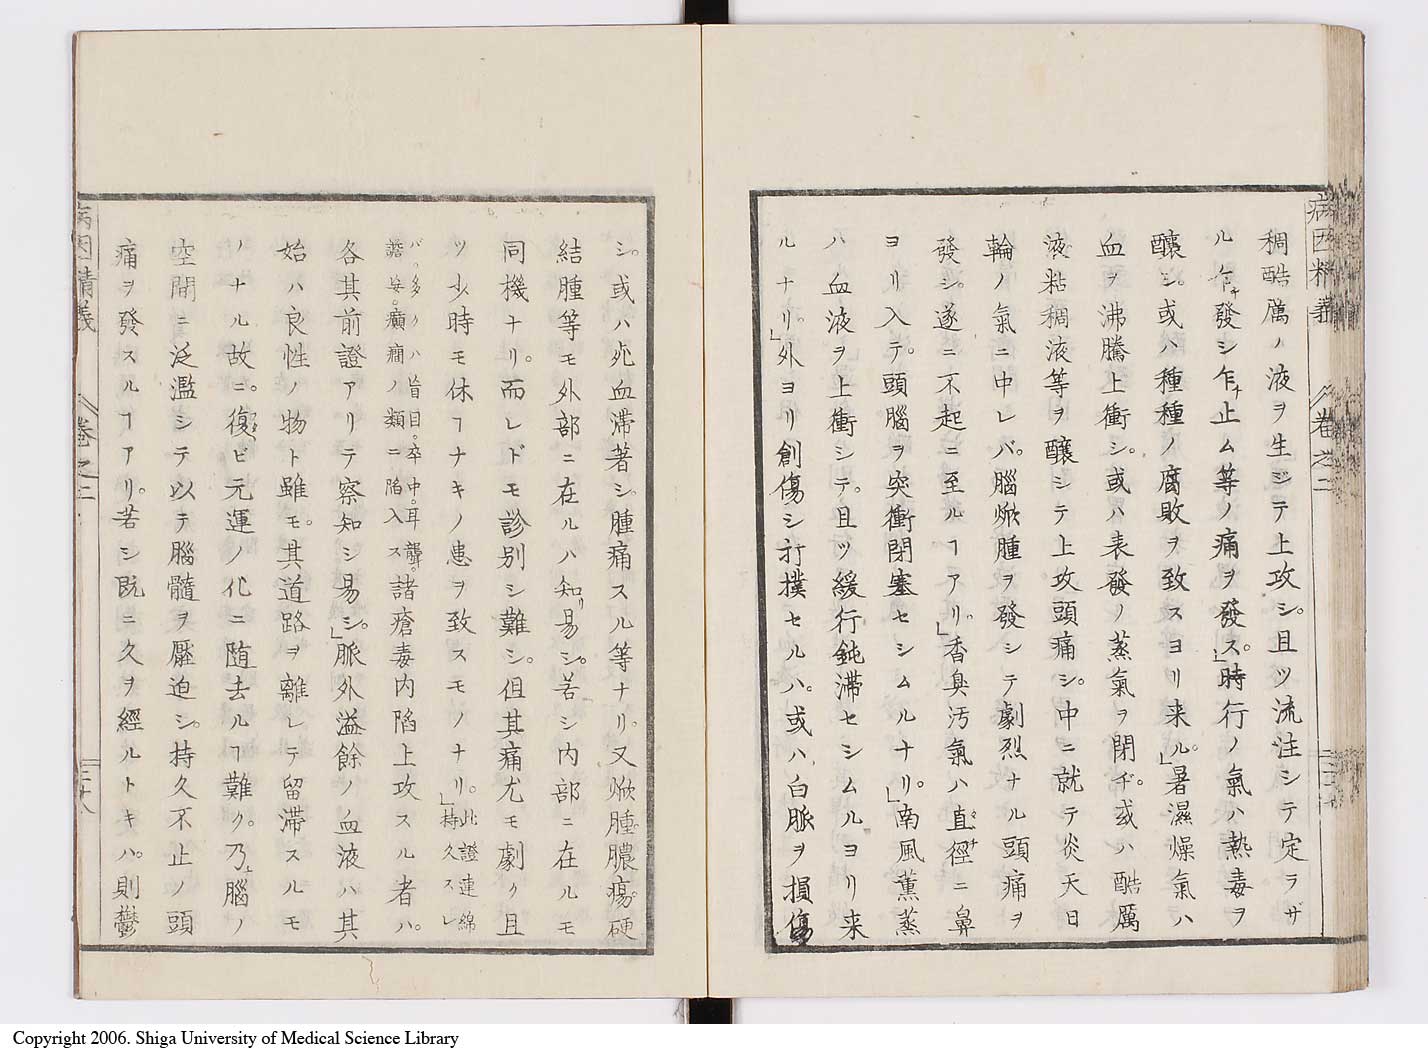 稠酷厲ノ液ヲ生ジテ上攻シ。且ツ流注シテ定ラザ
ルモ乍チ發シ乍チ止ム等ノ痛ヲ發ス。」時行ノ氣ハ熱毒ヲ
釀シ。或ハ種種ノ腐敗ヲ致スヨリ来ル。」暑濕燥氣ハ
血ヲ沸騰上衝シ。或ハ表發ノ蒸氣ヲ閉ヂ。或ハ酷厲
液粘稠液等ヲ釀シテ上攻頭痛シ。中ニ就テ炎天日
輪ノ氣ニ中レバ。腦焮腫ヲ發シテ劇烈ナル頭痛ヲ
發シ。遂ニ不起ニ至ルヿアリ。」香臭汚氣ハ直徑ニ鼻
ヨリ入テ。頭腦ヲ突衝閉塞セシムルナリ。」南風薫蒸
ハ血液ヲ上衝シテ。且ツ緩行鈍滯セシムルヨリ来
ルナリ。」外ヨリ創傷シ打撲セルハ。或ハ白脈ヲ損傷
病因精義
卷之二
シ。或ハ死血滯著シ。腫痛スル等ナリ。又焮腫膿瘍硬
結腫等モ外部ニ在ルハ知リ易シ。若シ内部ニ在ルモ
同機ナリ。而レドモ診別シ難シ。但其痛尤モ劇ク且
ツ少時モ休ヿナキノ患ヲ致スモノナリ。」此證連綿持久スレ
バ。多クハ盲目。卒中。耳聾。譫妄。癲癇ノ類ニ陷入ス諸瘡毒内陷上攻スル者ハ。
各其前證アリテ察知シ易シ。」脈外溢餘ノ血液ハ其
始ハ良性ノ物ト雖モ。其道路ヲ離レテ留滯スルモ
ノナル故ニ。復ビ元運ノ化ニ随去ルヿ難ク。乃チ腦ノ
空間ニ泛濫シテ以テ腦髓ヲ壓迫シ。持久不止ノ頭
痛ヲ發スルヿアリ。若シ既ニ久ヲ經ルトキハ。則鬱
病因精義
卷之二
二十八
Copyright 2006. Shiga University of Medical Science Library